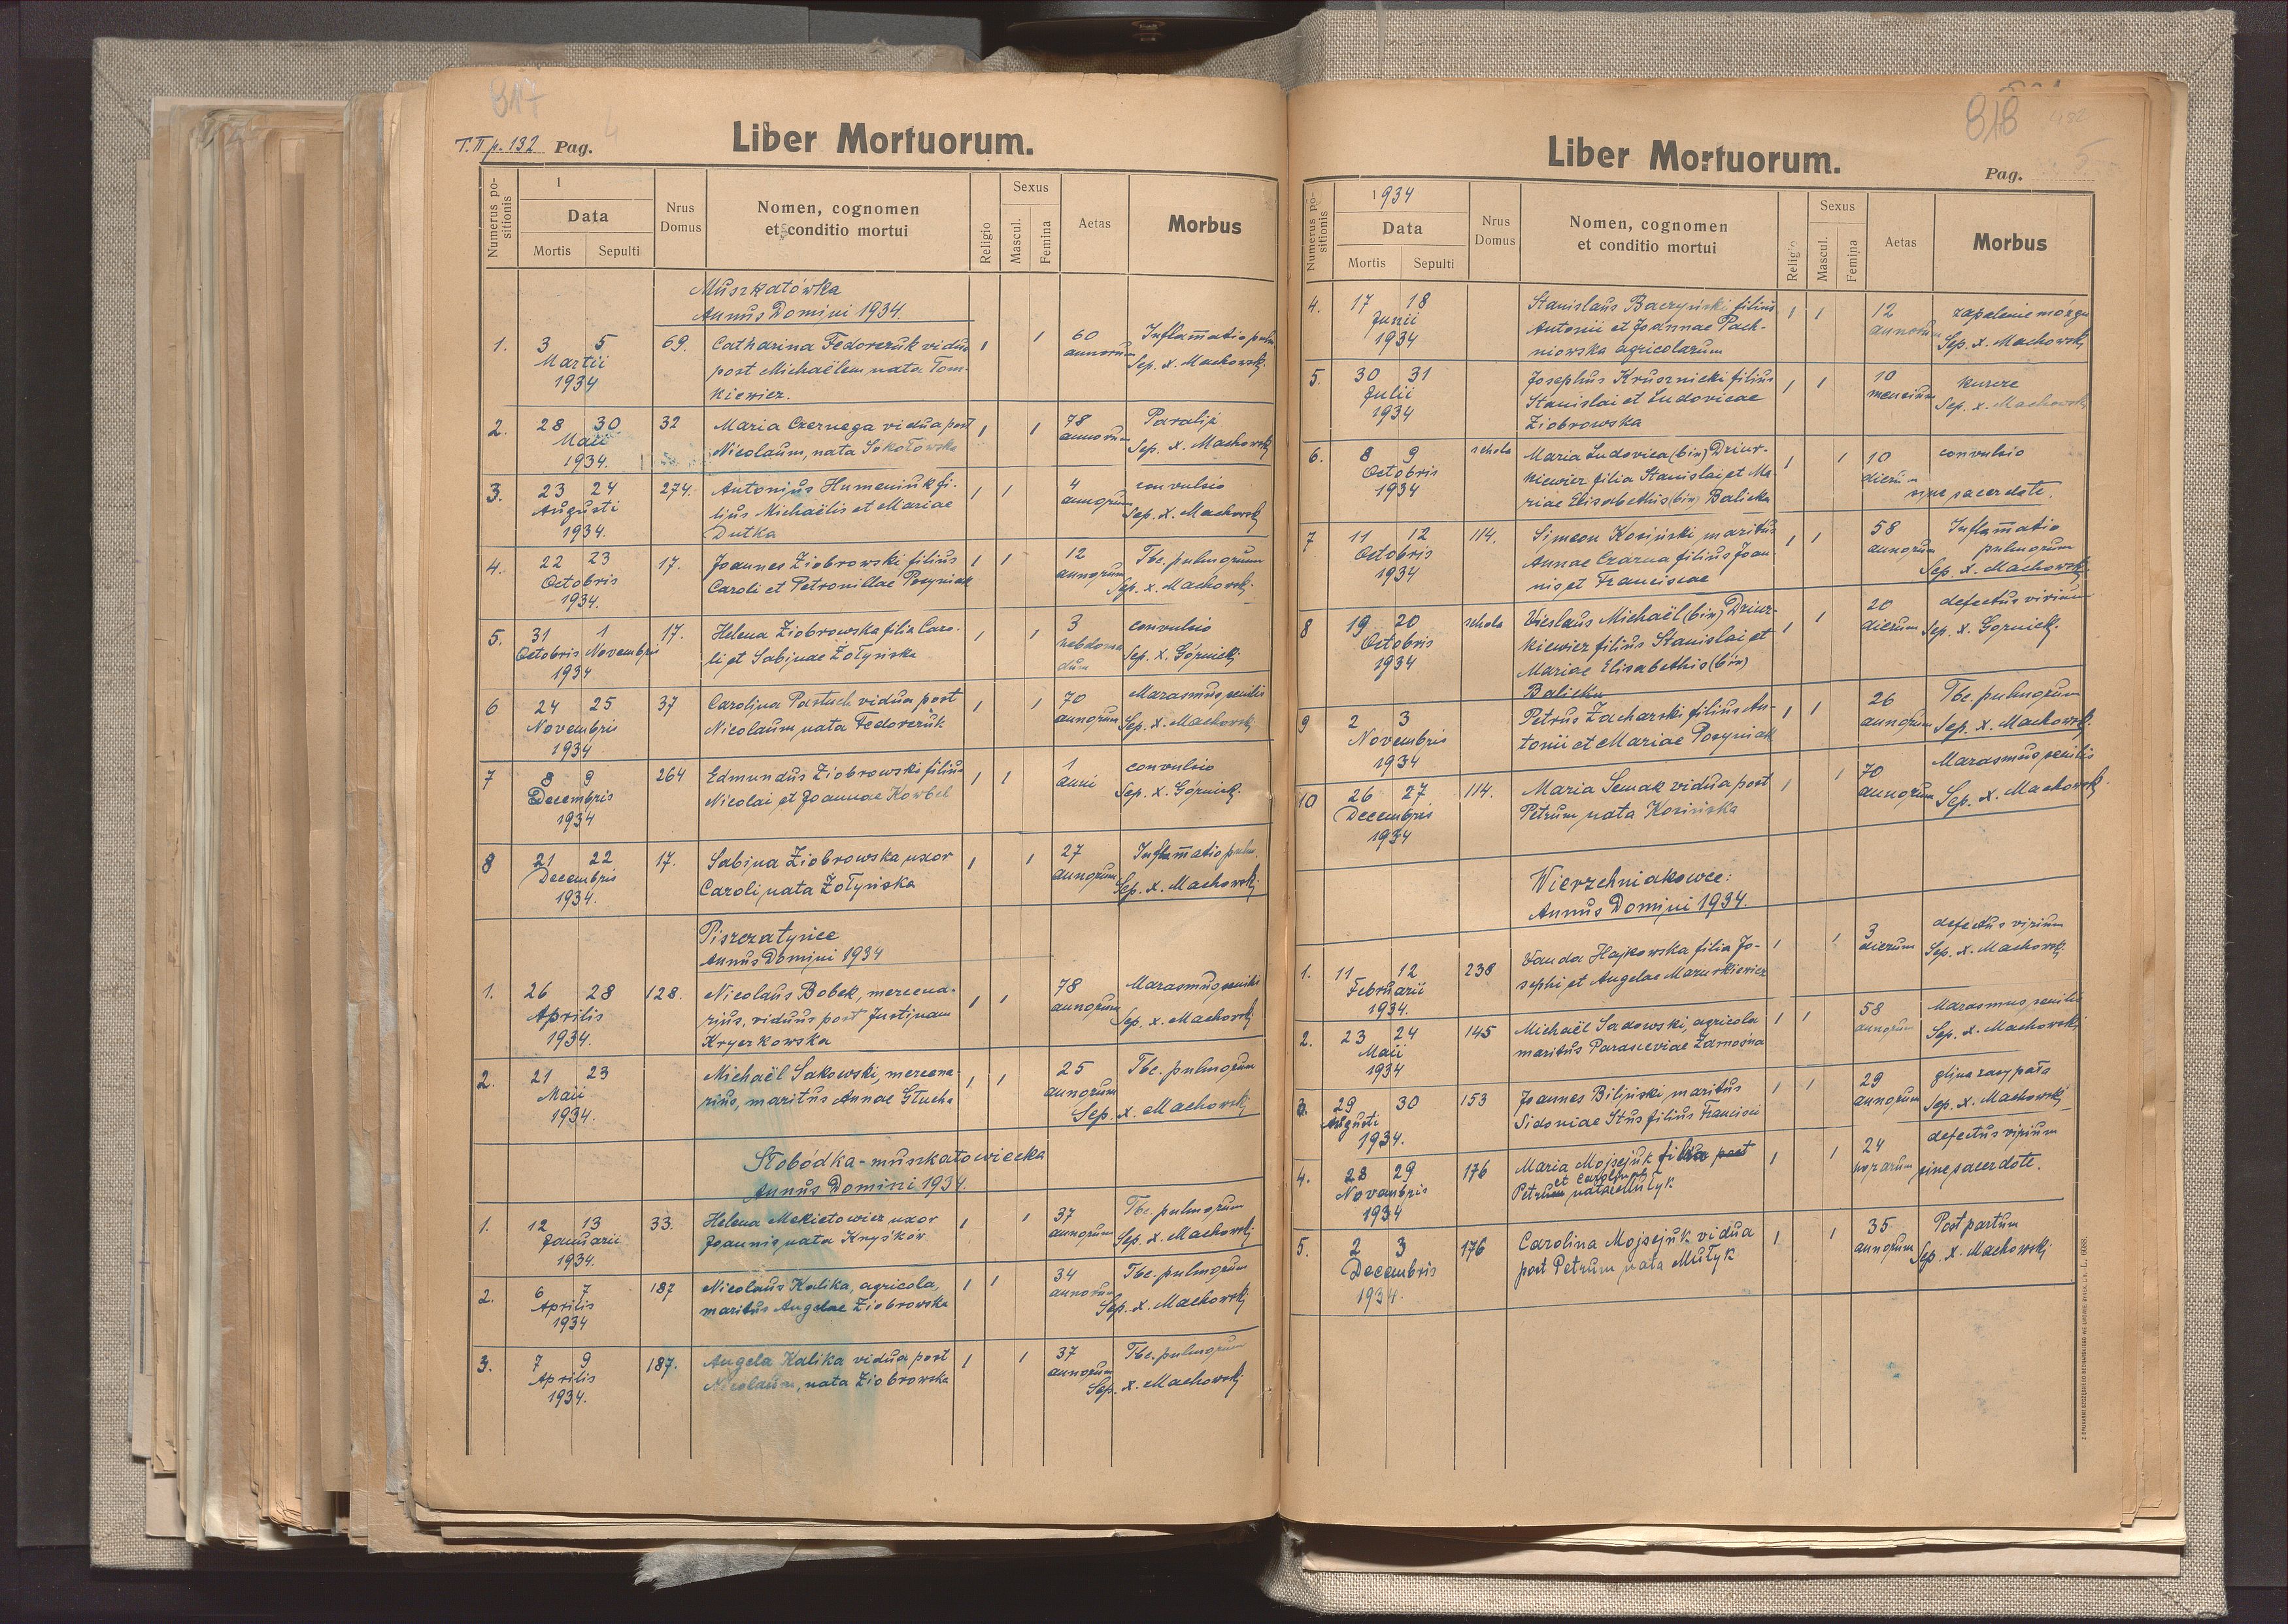 817
T. II p. 132 Pag. 4
Liber Mortuorum.
Numerus po-
sitionis
1
Data
Mortis Sepulti
Nrus
Domus
Nomen, cognomen
et conditio mortui
Religio
Sexus
Mascul.
Femina
Aetas
Morbus
Muszkatówka
Annus Domini 1934.
1. 3 5 69. Catharina Fedorczuk vidua 1 1 60 Inflam̄atio pulm.
Martii post Michaëlem nata Tom- annorum Sep. x. Machowski.
1934 kiewicz.
2. 28 30 32 Maria Czernega vidua post 1 1 78 Paraliż
Maii Nicolaum, nata Sokołowska annorum Sep. x. Machowski
1934.
3. 23 24 274. Antonius Humeniuk fi- 1 1 4 convulsio
Augusti lius Michaëlis et Mariae annorum Sep. x. Machowski
1934. Dutka
4. 22 23 17. Joannes Ziobrowski filius 1 1 12 Tbc. pulmonum
Octobris Caroli et Petronillae Posyniak annorum Sep. x. Machowski.
1934.
5. 31 1 17. Helena Ziobrowska filia Caro- 1 1 3 convulsio
Octobris Novembris li et Sabinae Żołyńska hebdoma Sep. x. Górnicki
1934 dum
6 24 25 37 Carolina Pastuch vidua post 1 1 70 Marasmus senilis
Novembris Nicolaum nata Fedorczuk annorum Sep. x. Machowski
1934
7 8 9 264 Edmundus Ziobrowski filius 1 1 1 convulsio
Decembris Nicolai et Joannae Kowbel anni Sep. x. Górnicki.
1934
8 21 22 17. Sabina Ziobrowska uxor 1 1 27 Inflam̄atio pulm.
Decembris Caroli nata Żołyńska annorum Sep. x. Machowski.
1934.
Piszczatynce
Annus Domini 1934
1. 26 28 128. Nicolaus Bobek, mercena- 1 1 78 Marasmus senilis
Aprilis rius, viduus post Justinam annorum Sep. x. Machowski
1934. Kryczkowska
2. 21 23 Michaël Sakowski, mercena- 1 1 25 Tbc. pulmonum
Maii rius, maritus Annae Głucha annorum
1934. Sep. x. Machowski
Słobódka-muszkatowiecka
Annus Domini 1934.
1. 12 13 33. Helena Mekietowicz uxor 1 1 37 Tbc. pulmonum
Januarii Joannis nata Knyśków annorum Sep. x. Machowski
1934.
2. 6 7 187 Nicolaus Kalika, agricola, 1 1 34 Tbc. pulmonum
Aprilis maritus Angelae Ziobrowska annorum Sep. x. Machowski
1934
3. 7 9 187. Angela Kalika vidua post 1 1 37 Tbc. pulmonum
Aprilis Nicolaum, nata Ziobrowska annorum Sep. x. Machowski
1934.
818
Liber Mortuorum.
Pag. 5
Numerus po-
sitionis
1934
Data
Mortis Sepulti
Nrus
Domus
Nomen, cognomen
et conditio mortui
Religio
Sexus
Mascul.
Femina
Aetas
Morbus
4. 17 18 Stanislaus Baczyński filius 1 1 12 zapalenie mózgu
Junii Antonii et Joannae Pach- annorum Sep. x. Machowski
1934 niowska agricolarum
5. 30 31 Josephus Krusznicki filius 1 1 10 kurcze
Julii Stanislai et Ludovicae mensium Sep. x. Machowski
1934 Ziobrowska
6. 8 9 schola Maria Ludovica (bin) Dziur- 1 1 10 convulsio
Octobris kiewicz filia Stanislai et Ma- dierum
1934 riae Elisabethis (bin) Balicka sine sacerdote.
7 11 12 114. Simeon Kosiński maritus 1 1 58 Inflam̄atio
Octobris Annae Czarna filius Joan- annorum pulmonum
1934 nis et Franciscae Sep. x. Machowski
8 19 20 schola Vieslaus Michaël (bin) Dziur- 1 1 20 defectus virium
Octobris kiewicz filius Stanislai et dierum Sep. x. Gornicki.
1934 Mariae Elisabethis (bin)
Balicka
9 2 3 Petrus Zacharski filius An- 1 1 26 Tbc. pulmonum
Novembris tonii et Mariae Posyniak annorum Sep. x. Machowski.
1934
10 26 27 114. Maria Semak vidua post 1 1 70 Marasmus senilis
Decembris Petrum nata Kosińska annorum Sep. x. Machowski
1934
Wierzchniakowce:
Annus Domini 1934.
1. 11 12 238 Vanda Hajkowska filia Jo- 1 1 3 defectus virium
Februarii sephi et Angelae Mazurkiewicz dierum Sep. x. Machowski.
1934.
2. 23 24 145 Michaël Sadowski, agricola 1 1 58 Marasmus senilis
Maii maritus Parasceviae Zamosna annorum Sep. x. Machowski
1934
3. 29 30 153 Joannes Biliński maritus 1 1 29 glina zasypała
Augusti Sidoniae Stus filius Francisci annorum Sep. x. Machowski
1934.
4. 28 29 176 Maria Mojsejuk filia post 1 1 24 defectus virium
Novembris Petrum et Carolinae nata Mułyk horarum sine sacerdote.
1934
5. 2 3 176 Carolina Mojsejuk vidua 1 1 35 Post partum
Decembris post Petrum nata Mułyk annorum Sep. x. Machowski
1934.